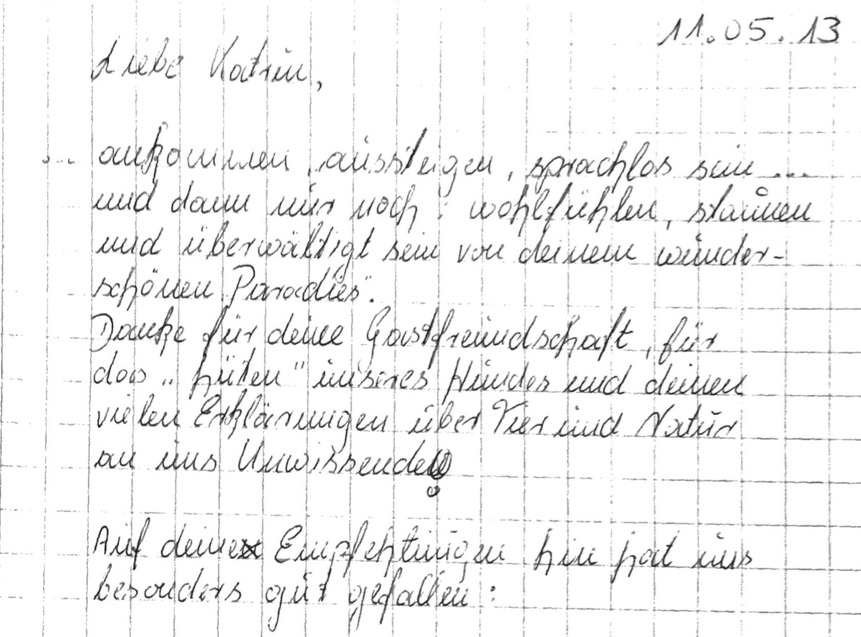 11.05.13
Liebe Katrin,
... ankommen, aussteigen, sprachlos sein ...
und dann nur noch: wohlfühlen, staunen
und überwältigt sein von deinem wunder-
schönen „Paradies".
Danke für deine Gastfreundschaft, für
das „hüten" unseres Hundes und deinen
vielen Erklärungen über Tier und Natur
an uns Unwissende!
Auf deine Empfehlungen hin hat uns
besonders gut gefallen: